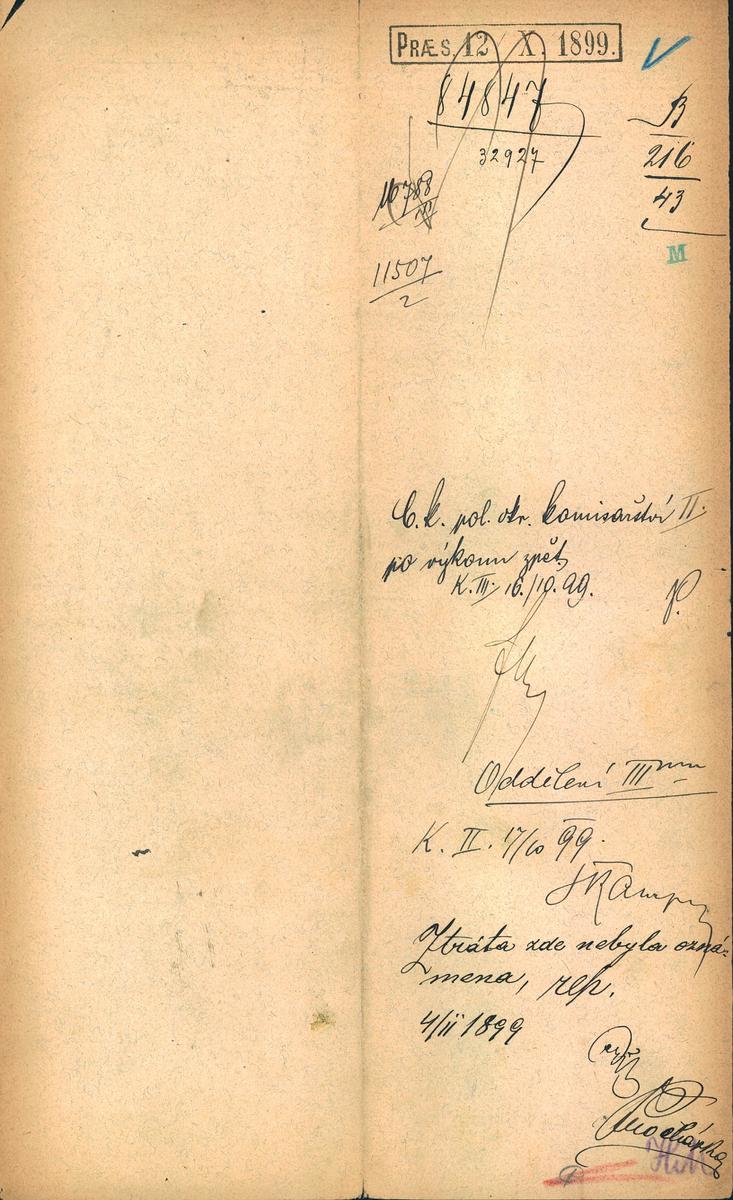 PRÆS. 12 X. 1899.
84847
32927
B
216
43
11507
2
M
C. k. pol. okr. komisařství II.
po výkonu zpět.
K. III. 16./10. 99.
P.
Oddělení III
K. II. 17/10 99.
Ztráta zde nebyla ozná-
mena, rep.
4/II 1899
Procházka